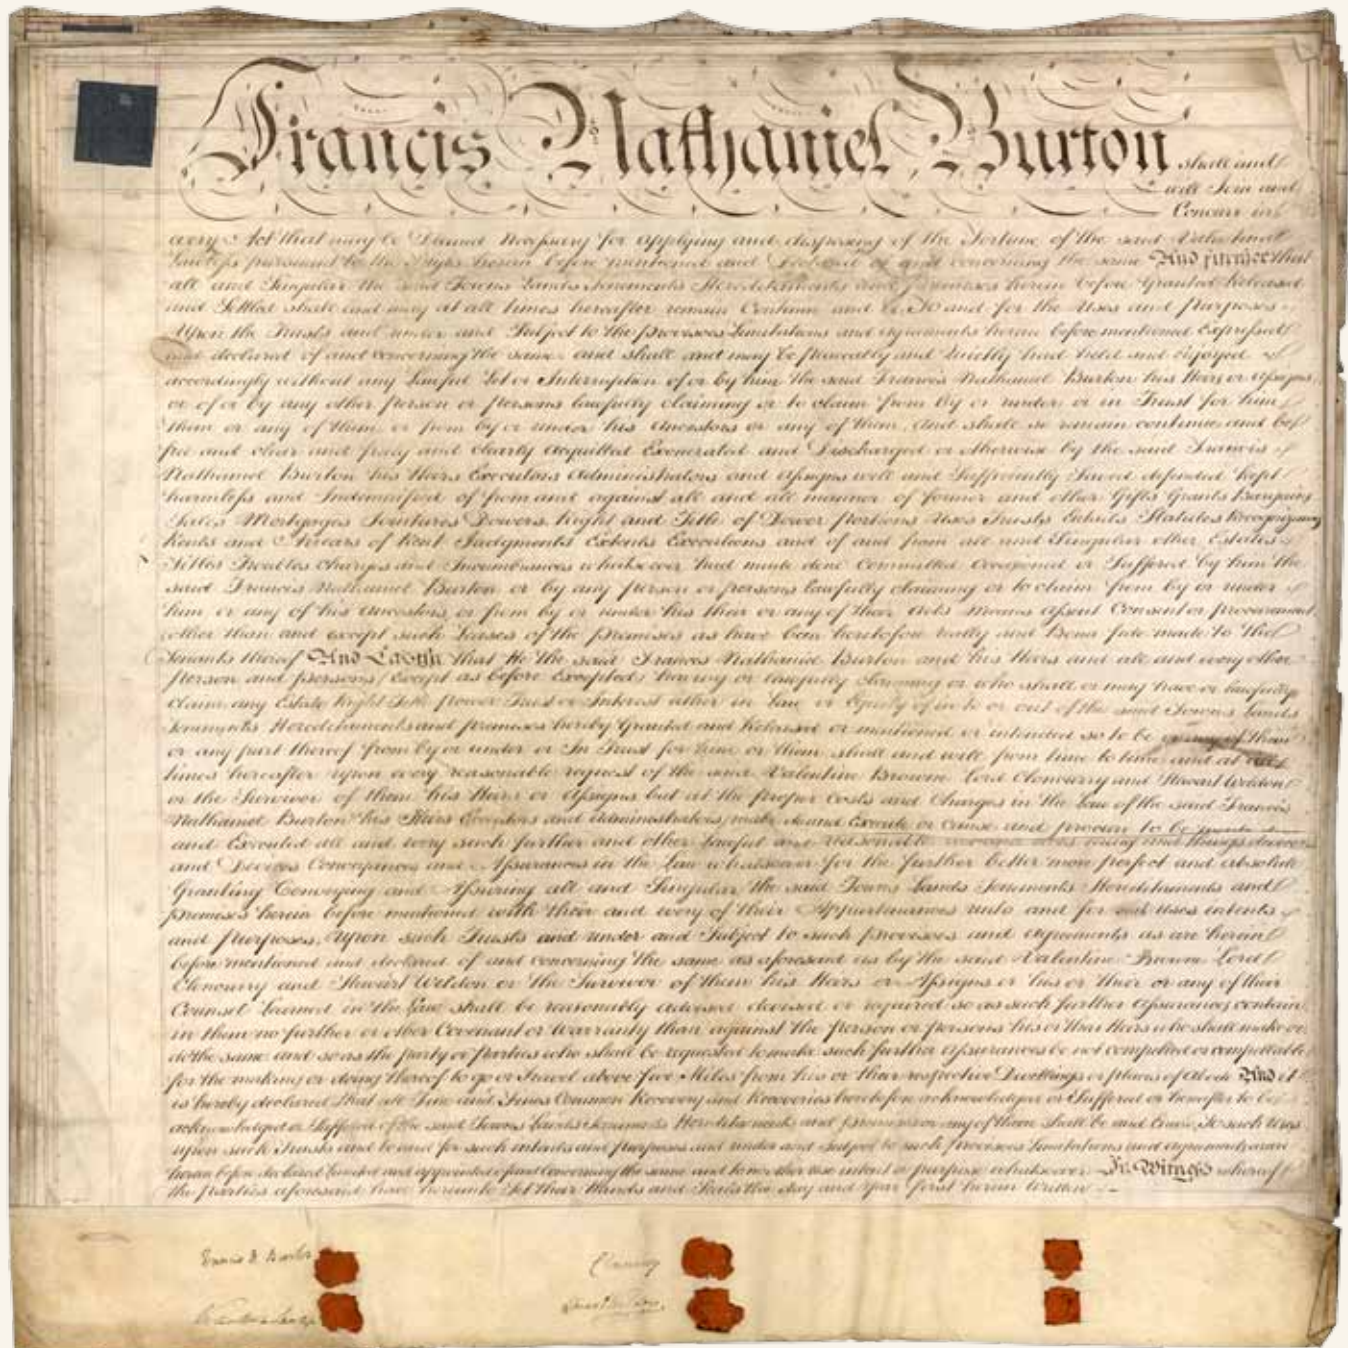 Francis Nathaniel Burton shall and
will Join and
Concur in
every Act that may be Deemed Necessary for applying and disposing of the Fortune of the said Valentine
pursuant to the herein before mentioned and Declared of and concerning the same And further that
all and Singular the said Towns Lands Tenements Hereditaments and premises herein before Granted Released
and Settled shall and may at all times hereafter remain Continue and be To and for the Uses and Purposes
Upon the Trusts and under and Subject to the provisoes Limitations and agreements herein before mentioned Expressed
and declared of and concerning the same and shall and may be peaceably and Quietly had held and enjoyed
accordingly without any Lawful Let or Interruption of or by him the said Francis Nathaniel Burton his Heirs or Assigns
or of or by any other person or persons lawfully claiming or to claim from by or under or in Trust for him
them or any of them or from by or under his Ancestors or any of them And shall so remain continue and be
free and clear and freely and clearly acquitted Exonerated and Discharged or otherwise by the said Francis
Nathaniel Burton his Heirs Executors Administrators and Assigns well and Sufficiently Saved defended kept
harmless and Indemnified of from and against all and all manner of former and other Gifts Grants Bargains
Sales Mortgages Jointures Dowers Right and Title of Dower portions Uses Trusts Entails Statutes Recognizances
Rents and Arrears of Rent Judgments Extents Executions and of and from all and Singular other Estates
Titles Troubles Charges and Incumbrances whatsoever had made done Committed Occasioned or Suffered by him the
said Francis Nathaniel Burton or by any person or persons lawfully claiming or to claim from by or under
him or any of his Ancestors or from by or under his their or any of their Acts Means Assent Consent or procurement
other than and except such Leases of the premises as have been heretofore really and Bona fide made to the
Tenants thereof And Lastly that He the said Francis Nathaniel Burton and his Heirs and all and every other
person and persons (Except as before Excepted) having or lawfully claiming or who shall or may have or lawfully
claim any Estate Right Title power Trust or Interest either in Law or Equity of in to or out of the said Towns Lands
Tenements Hereditaments and premises hereby Granted and Released or mentioned or intended so to be or any of them
or any part thereof from by or under or In Trust for him or them shall and will from time to time and at all
times hereafter upon every reasonable request of the said Valentine Browne Lord Cloncurry and Stewart Weldon
or the Survivor of them his Heirs or Assigns but at the proper Costs and Charges in the Law of the said Francis
Nathaniel Burton his Heirs Executors and Administrators make do and Execute or Cause and procure to be made
and Executed all and every such further and other Lawful and reasonable and things
and Devices Conveyances and Assurances in the Law whatsoever for the further better more perfect and absolute
Granting Conveying and Assuring all and Singular the said Towns Lands Tenements Hereditaments and
premises herein before mentioned with their and every of their Appurtenances unto and for Uses intents
and purposes, Upon such Trusts and under and Subject to such provisoes and agreements as are herein
before mentioned and declared of and concerning the same as aforesaid as by the said Valentine Browne Lord
Cloncurry and Stewart Weldon or the Survivor of them his Heirs or Assigns or his or their or any of their
Counsel Learned in the Law shall be reasonably advised devised or required so as such further assurances contain
in them no further or other Covenant or Warranty than against the person or persons his or their Heirs who shall make or
do the same and so as the party or parties who shall be requested to make such further assurances be not compelled or compellable
for the making or doing thereof to go or Travel above five Miles from his or their respective Dwellings or places of abode And it
is hereby declared that all Fine and Fines Common Recovery and Recoveries heretofore acknowledged or Suffered or hereafter to be
acknowledged or Suffered of the said Towns Lands Tenements Hereditaments and premises or any of them shall be and Enure To such Uses
upon such Trusts and to and for such intents and purposes and under and subject to such provisoes Limitations and agreements as are
herein before declared Limited and appointed of and concerning the same and to no other use intent or purpose whatsoever In Witness whereof
the parties aforesaid have hereunto Set their Hands and Seals the day and Year first herein Written
Francis N. Burton
Cloncurry